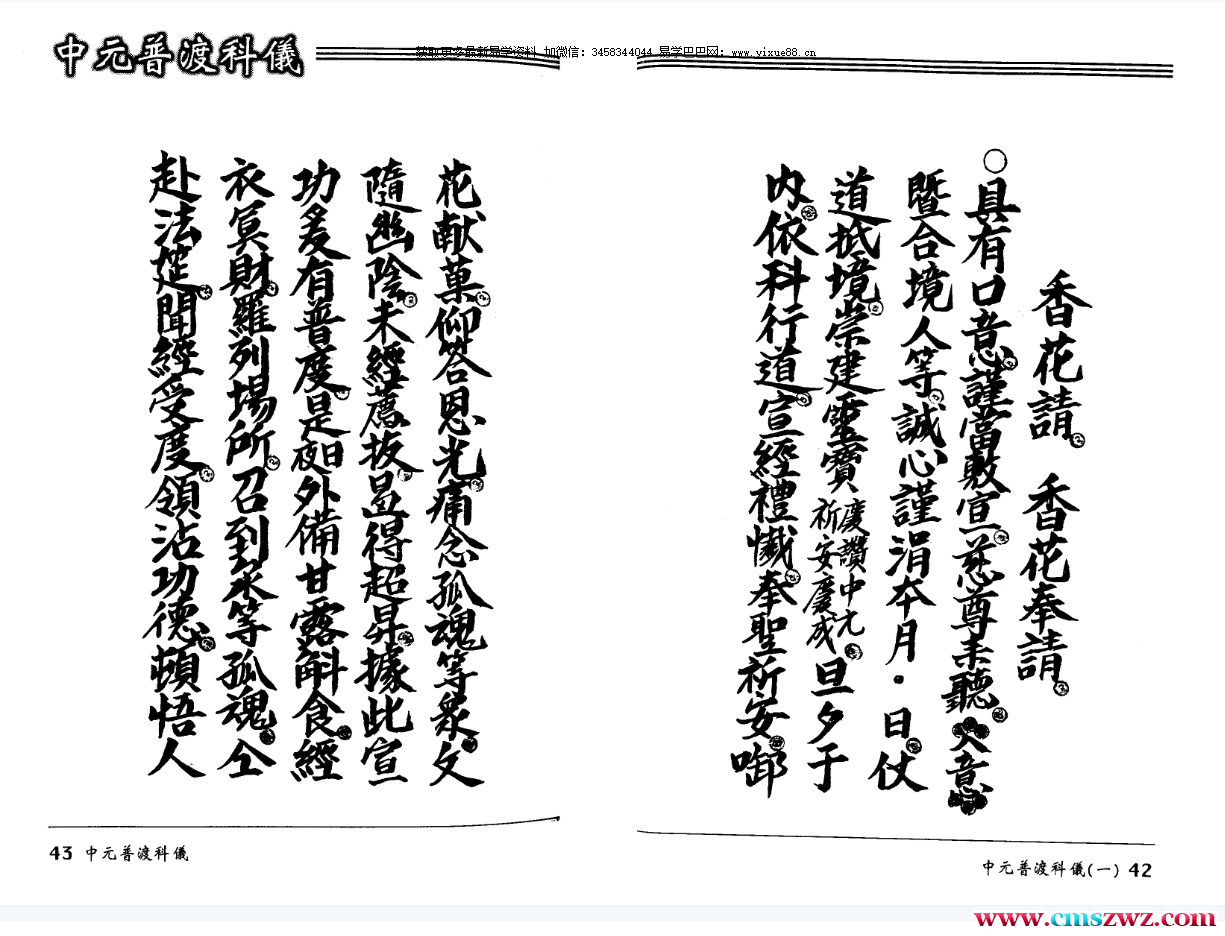 中元普渡科儀
获取更多最新易学资料 加微信：3458344044 易学巴巴网：www.yixue88.cn
香花請 香花奉請
○具有口意謹當敷宣慈尊未聽入意
暨合境人等誠心謹涓本月·日仗
道抵境崇建靈寶慶讚中元祈安慶成旦夕于
内依科行道宣經禮懺奉聖祈安啣
花献菓仰答恩光痛念孤魂等衆久
隨幽陰未經薦拔曷得超昇據此宣
功爰有普度是夜日外備甘露斛食經
衣冥財羅列場所召到衆等孤魂仝
赴法筵聞經受度領沾功德頓悟人
43 中元普渡科儀
中元普渡科儀(一) 42
www.cmszwz.com